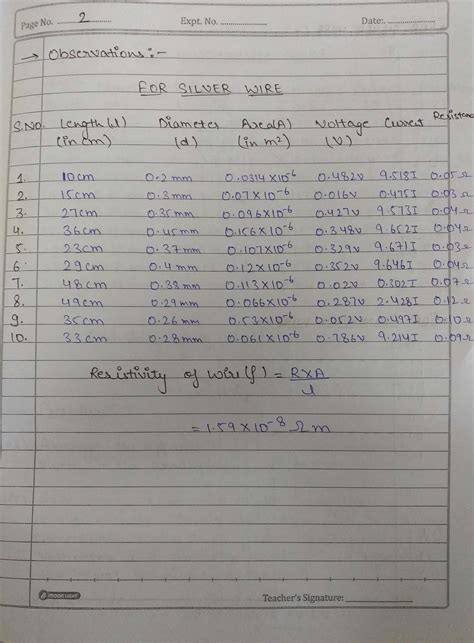 Page No. 2 Expt. No. Date:
→ Observations :-
FOR SILVER WIRE
S.NO. Length(l) Diameter Area(A) Voltage Current Resistance
(in cm) (d) (in m²) (V)
1. 10cm 0.2 mm 0.0314×10⁻⁶ 0.482v 9.518I 0.05Ω
2. 15cm 0.3mm 0.07×10⁻⁶ 0.016v 0.475I 0.03Ω
3. 27cm 0.35mm 0.096×10⁻⁶ 0.427v 9.573I 0.04Ω
4. 36cm 0.45mm 0.156×10⁻⁶ 0.348v 9.652I 0.04Ω
5. 23cm 0.37mm 0.107×10⁻⁶ 0.329v 9.671I 0.03Ω
6. 29cm 0.4mm 0.12×10⁻⁶ 0.352v 9.646I 0.04Ω
7. 48cm 0.38mm 0.113×10⁻⁶ 0.02v 0.302I 0.07Ω
8. 49cm 0.29mm 0.066×10⁻⁶ 0.287v 2.428I 0.12Ω
9. 35cm 0.26mm 0.53×10⁻⁶ 0.052v 0.497I 0.10Ω
10. 33cm 0.28mm 0.061×10⁻⁶ 0.786v 9.214I 0.09Ω
Resistivity of wire(ρ) = R×A
l
= 1.59×10⁻⁸ Ωm
MOONLIGHT Teacher's Signature: